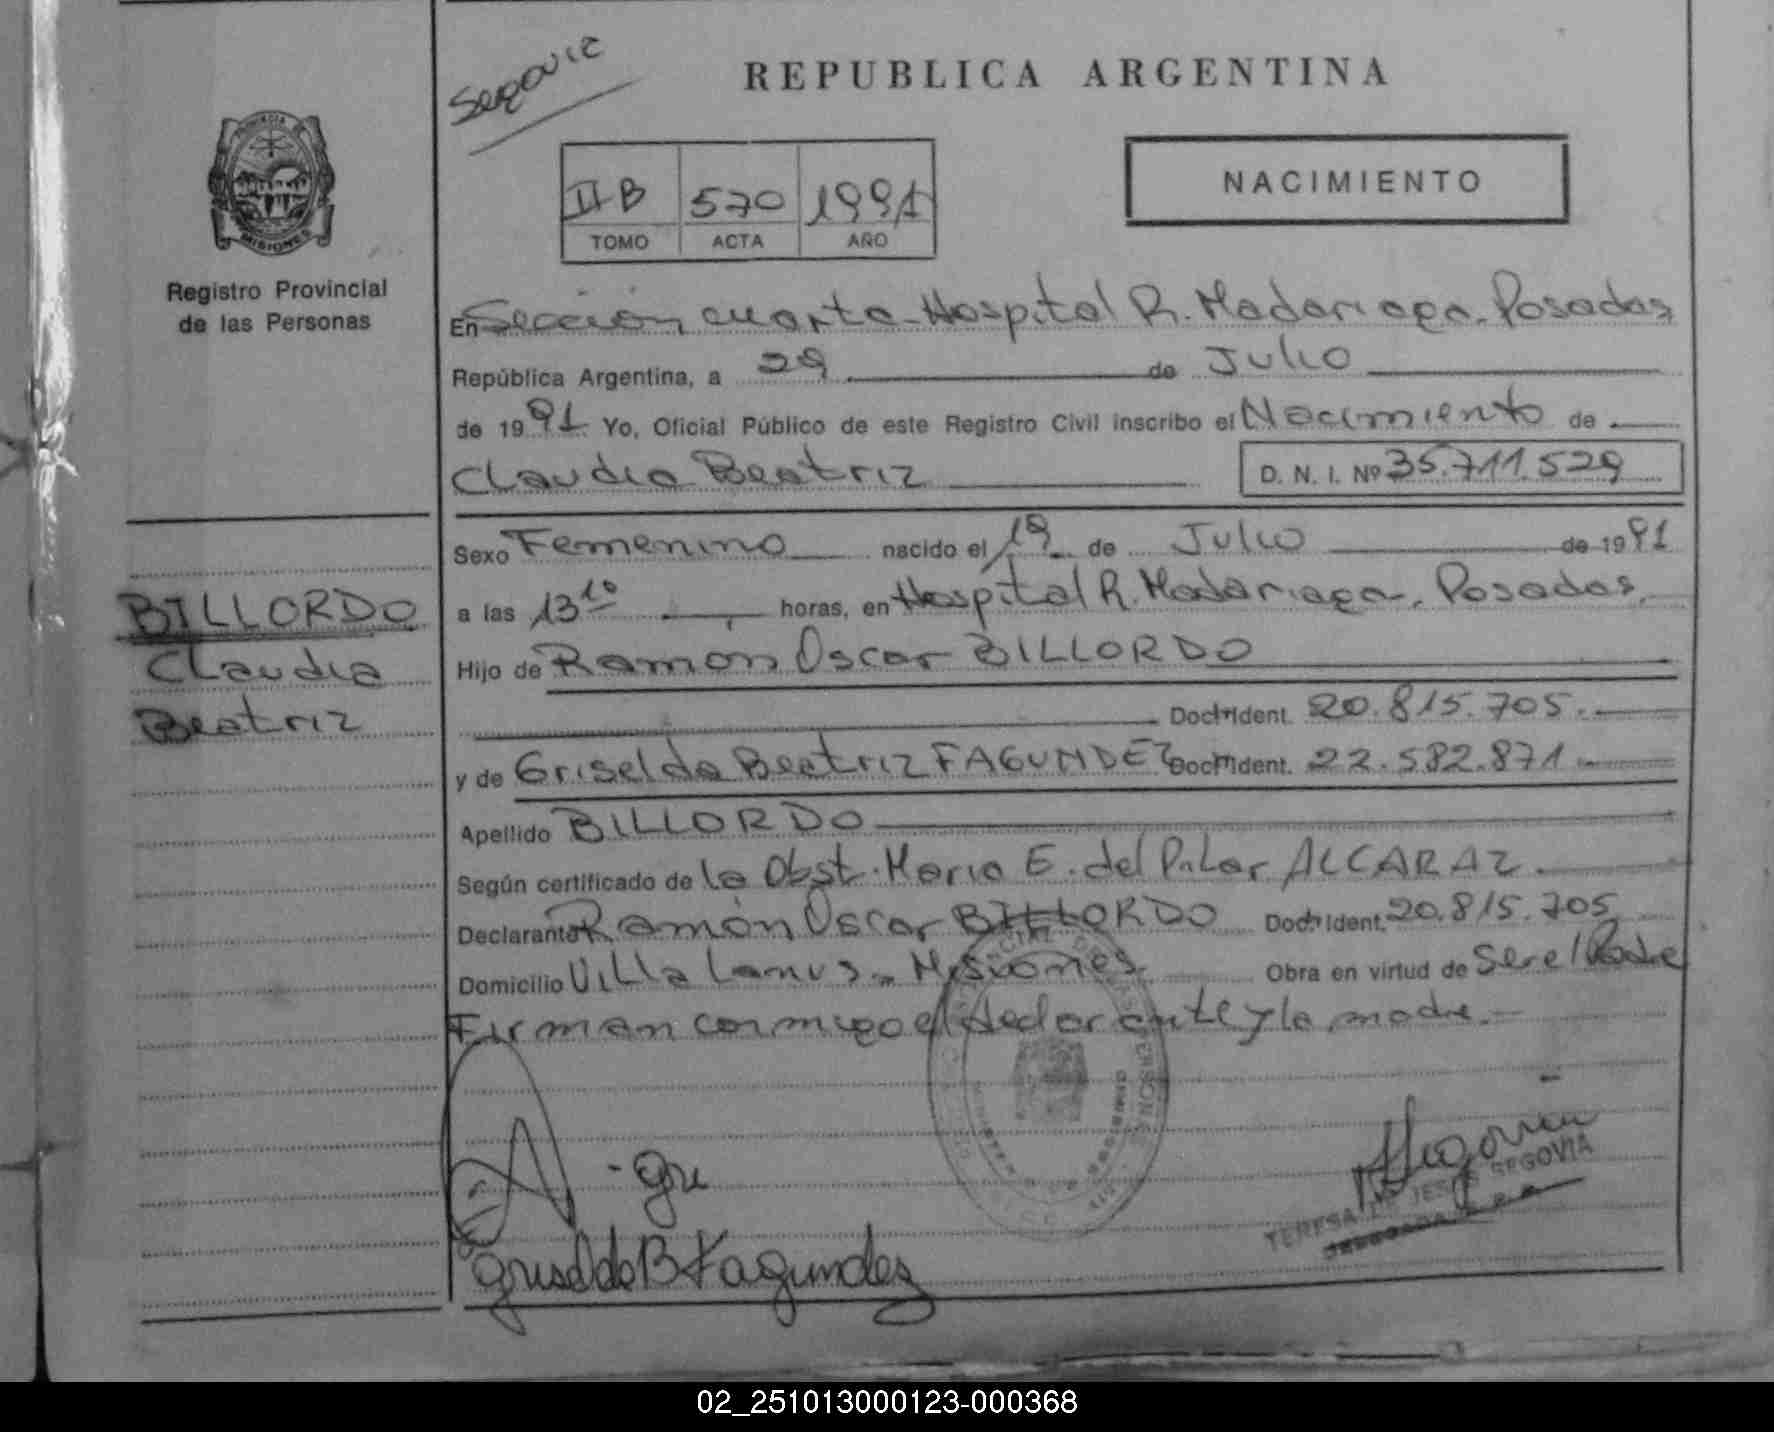 Segovia
REPUBLICA ARGENTINA
PROVINCIA DE
MISIONES
Registro Provincial
de las Personas
II B 570 1991
TOMO ACTA AÑO
NACIMIENTO
En Sección cuarta - Hospital R. Madariaga. Posadas,
República Argentina, a 29 de Julio
de 1991 Yo, Oficial Público de este Registro Civil inscribo el Nacimiento de
Claudia Beatriz D. N. I. Nº 35.711.529
Sexo Femenino nacido el 19 de Julio de 1991
a las 13 10 horas, en Hospital R. Madariaga, Posadas,
Hijo de Ramón Oscar BILLORDO
Doc. Ident. 20.815.705.
y de Griselda Beatriz FAGUNDEZ Doc. Ident. 22.582.871
Apellido BILLORDO
Según certificado de la Obst. Maria E. del Pilar ALCARAZ.
Declarante Ramón Oscar BILLORDO Doc. Ident. 20.815.705
Domicilio Villa Lanus - Misiones Obra en virtud de Ser el Padre
Firman conmigo el declarante y la madre.-
BILLORDO
Claudia
Beatriz
Griselda B Fagundez
Segovia
TERESA DE JESUS SEGOVIA
02_251013000123-000368